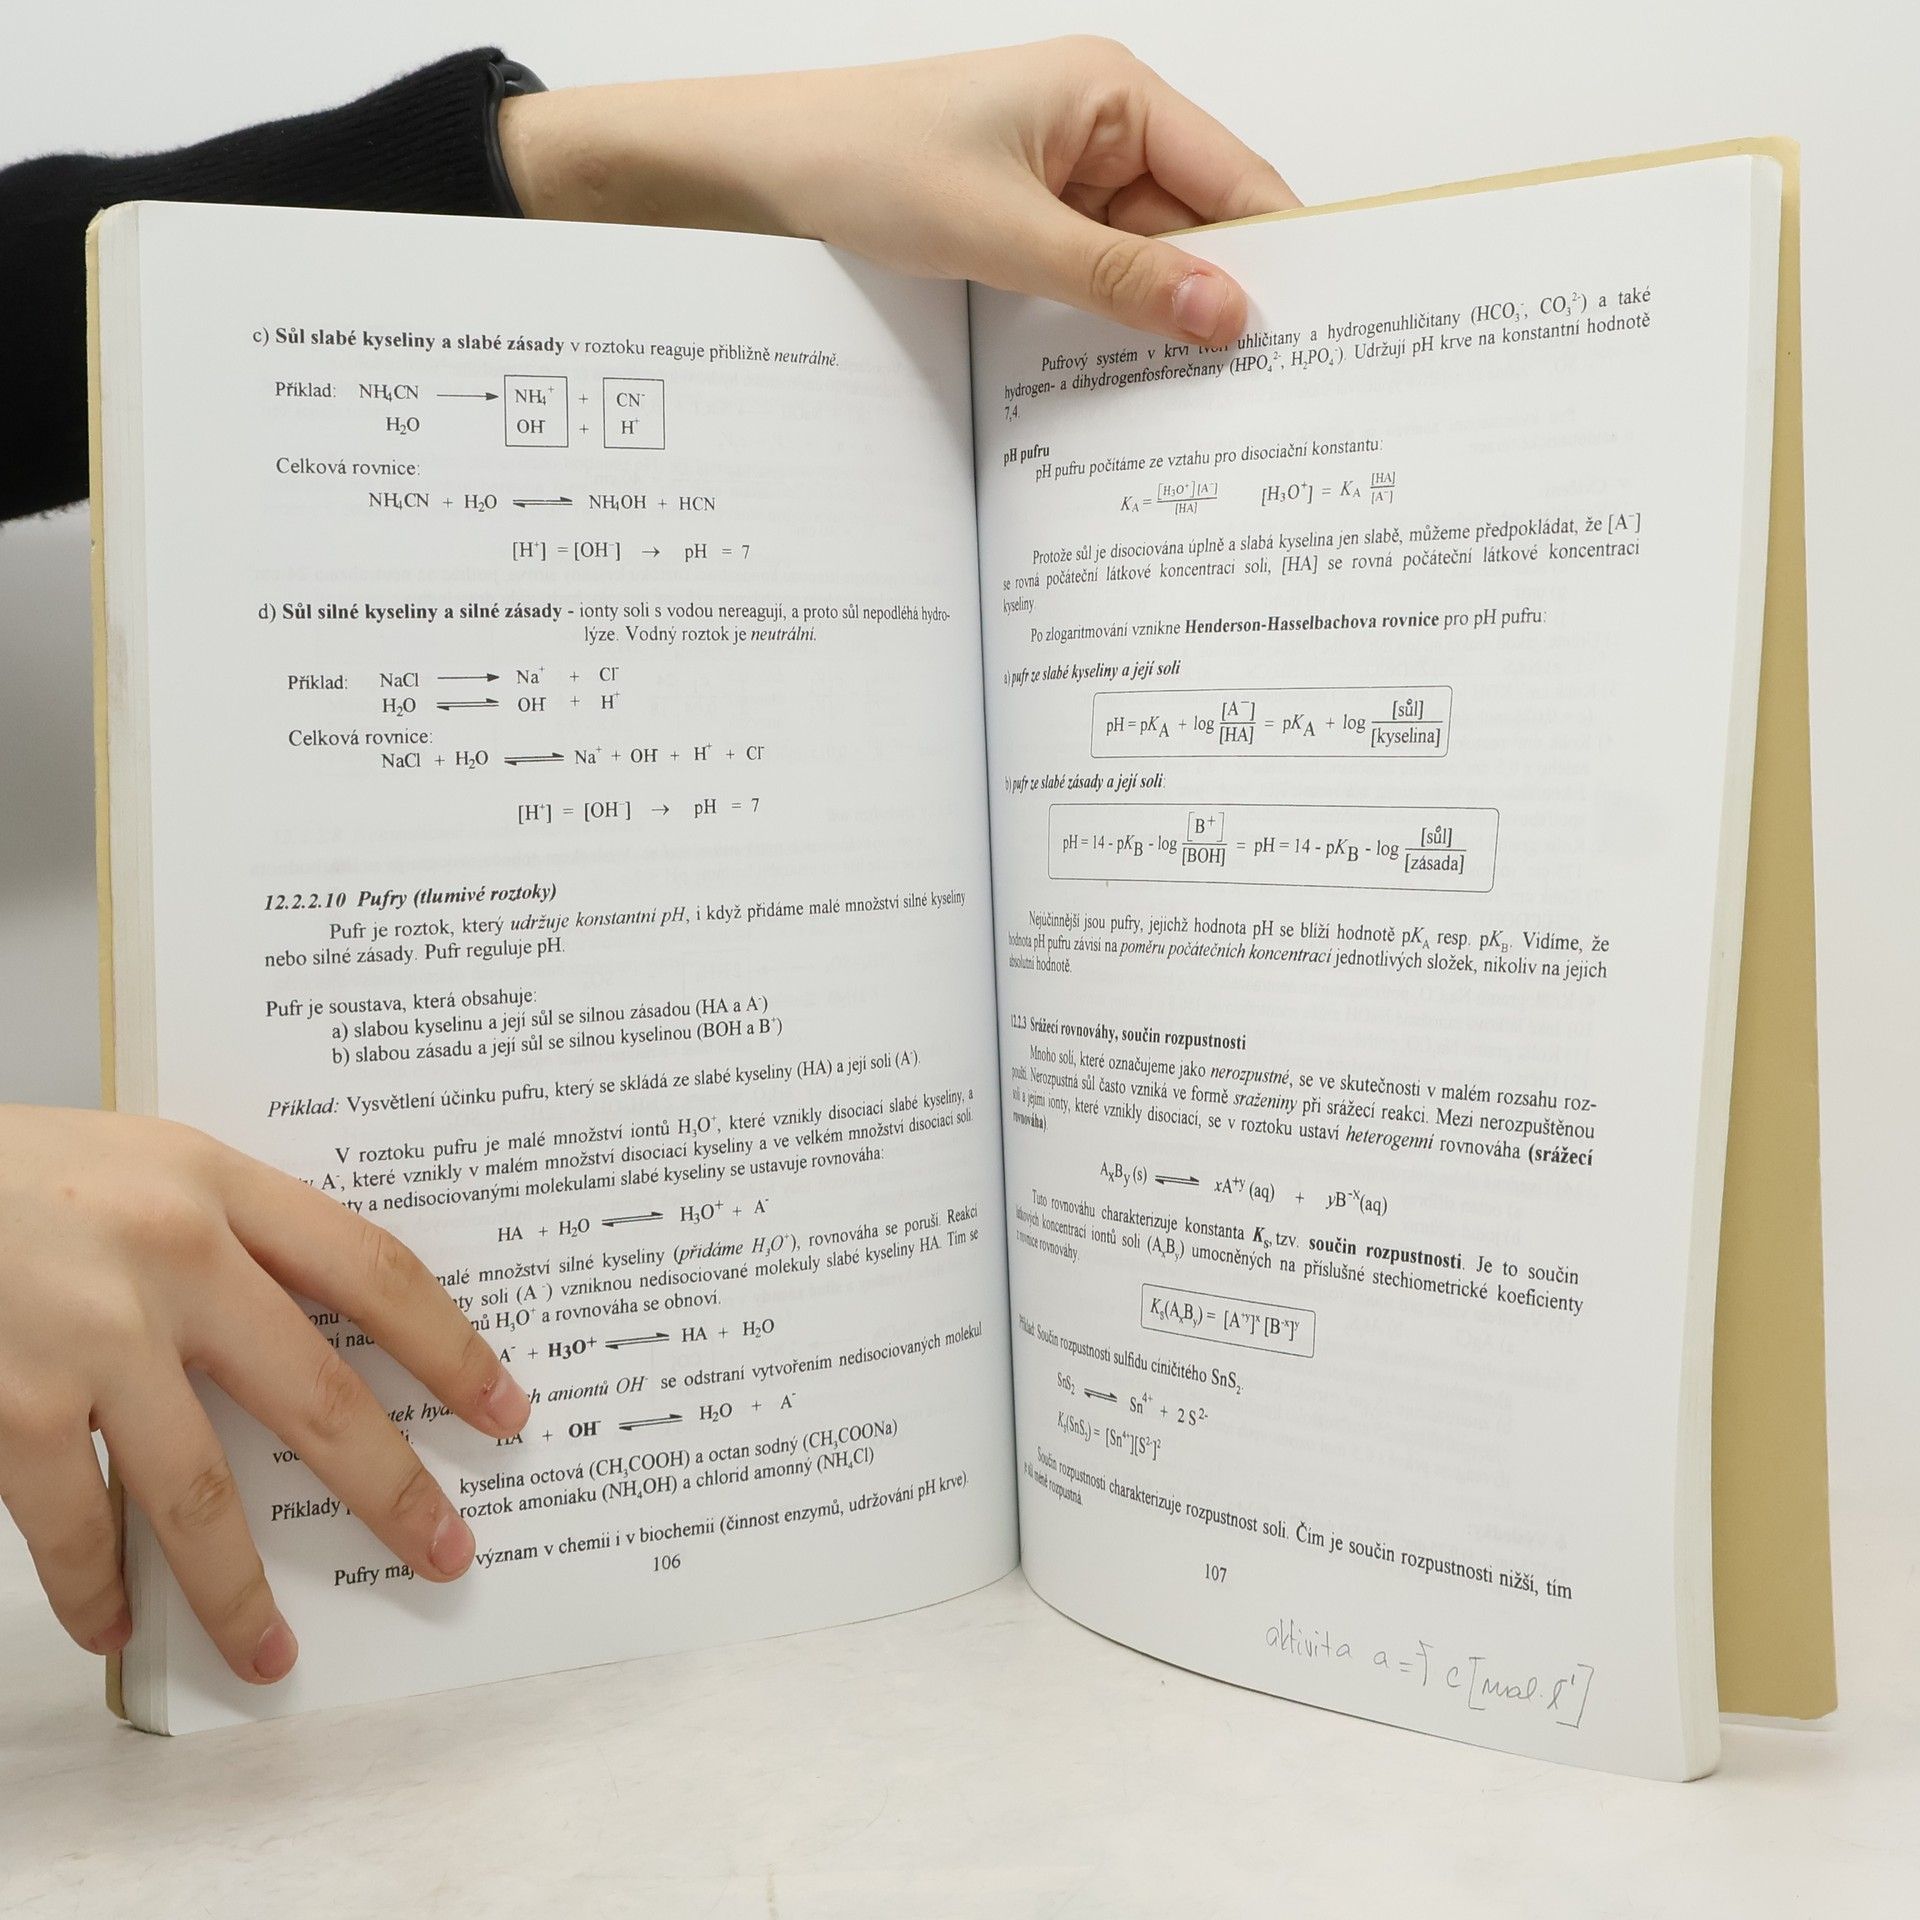 c) Sůl slabé kyseliny a slabé zásady v roztoku reaguje přibližně neutrálně.
Příklad: NH₄CN ⟶ NH₄⁺ + CN⁻
H₂O OH⁻ + H⁺
Celková rovnice:
NH₄CN + H₂O ⇌ NH₄OH + HCN
[H⁺] = [OH⁻] → pH = 7
d) Sůl silné kyseliny a silné zásady - ionty soli s vodou nereagují, a proto sůl nepodléhá hydro-
lýze. Vodný roztok je neutrální.
Příklad: NaCl ⟶ Na⁺ + Cl⁻
H₂O ⇌ OH⁻ + H⁺
Celková rovnice:
NaCl + H₂O ⇌ Na⁺ + OH⁻ + H⁺ + Cl⁻
[H⁺] = [OH⁻] → pH = 7
12.2.2.10 Pufry (tlumivé roztoky)
Pufr je roztok, který udržuje konstantní pH, i když přidáme malé množství silné kyseliny
nebo silné zásady. Pufr reguluje pH.
Pufr je soustava, která obsahuje:
a) slabou kyselinu a její sůl se silnou zásadou (HA a A⁻)
b) slabou zásadu a její sůl se silnou kyselinou (BOH a B⁺)
Příklad: Vysvětlení účinku pufru, který se skládá ze slabé kyseliny (HA) a její soli (A⁻).
V roztoku pufru je malé množství iontů H₃O⁺, které vznikly disociací slabé kyseliny, a
A⁻, které vznikly v malém množství disociací kyseliny a ve velkém množství disociací soli.
a nedisociovanými molekulami slabé kyseliny se ustavuje rovnováha:
HA + H₂O ⇌ H₃O⁺ + A⁻
množství silné kyseliny (přidáme H₃O⁺), rovnováha se poruší. Reakcí
soli (A⁻) vzniknou nedisociované molekuly slabé kyseliny HA. Tím se
H₃O⁺ a rovnováha se obnoví.
A⁻ + H3O+ ⇌ HA + H₂O
aniontů OH⁻ se odstraní vytvořením nedisociovaných molekul
HA + OH⁻ ⇌ H₂O + A⁻
kyselina octová (CH₃COOH) a octan sodný (CH₃COONa)
Příklady roztok amoniaku (NH₄OH) a chlorid amonný (NH₄Cl)
Pufry význam v chemii i v biochemii (činnost enzymů, udržování pH krve).
106
Pufrový systém v krvi uhličitany a hydrogenuhličitany (HCO₃⁻, CO₃²⁻) a také
hydrogen- a dihydrogenfosforečnany (HPO₄²⁻, H₂PO₄⁻). Udržují pH krve na konstantní hodnotě
7,4.
pH pufru
pH pufru počítáme ze vztahu pro disociační konstantu:
K_A = [H₃O⁺][A⁻]/[HA] [H₃O⁺] = K_A [HA]/[A⁻]
Protože sůl je disociována úplně a slabá kyselina jen slabě, můžeme předpokládat, že [A⁻]
se rovná počáteční látkové koncentraci soli, [HA] se rovná počáteční látkové koncentraci
kyseliny.
Po zlogaritmování vznikne Henderson-Hasselbachova rovnice pro pH pufru:
a) pufr ze slabé kyseliny a její soli
pH = pK_A + log [A⁻]/[HA] = pK_A + log [sůl]/[kyselina]
b) pufr ze slabé zásady a její soli:
pH = 14 - pK_B - log [B⁺]/[BOH] = pH = 14 - pK_B - log [sůl]/[zásada]
Nejúčinnější jsou pufry, jejichž hodnota pH se blíží hodnotě pK_A resp. pK_B. Vidíme, že
hodnota pH pufru závisí na poměru počátečních koncentrací jednotlivých složek, nikoliv na jejich
absolutní hodnotě.
12.2.3 Srážecí rovnováhy, součin rozpustnosti
Mnoho solí, které označujeme jako nerozpustné, se ve skutečnosti v malém rozsahu roz-
pouští. Nerozpustná sůl často vzniká ve formě sraženiny při srážecí reakci. Mezi nerozpuštěnou
solí a jejími ionty, které vznikly disociací, se v roztoku ustaví heterogenní rovnováha (srážecí
rovnováha).
AₓBᵧ (s) ⇌ xA⁺ʸ (aq) + yB⁻ˣ (aq)
Tuto rovnováhu charakterizuje konstanta Kₛ, tzv. součin rozpustnosti. Je to součin
látkových koncentrací iontů soli (AₓBᵧ) umocněných na příslušné stechiometrické koeficienty
z rovnice rovnováhy.
Kₛ(AₓBᵧ) = [A⁺ʸ]ˣ [B⁻ˣ]ʸ
Příklad: Součin rozpustnosti sulfidu cíničitého SnS₂.
SnS₂ ⇌ Sn⁴⁺ + 2 S²⁻
Kₛ(SnS₂) = [Sn⁴⁺][S²⁻]²
Součin rozpustnosti charakterizuje rozpustnost soli. Čím je součin rozpustnosti nižší, tím
je sůl méně rozpustná.
107
aktivita a = f c [mol·l⁻¹]